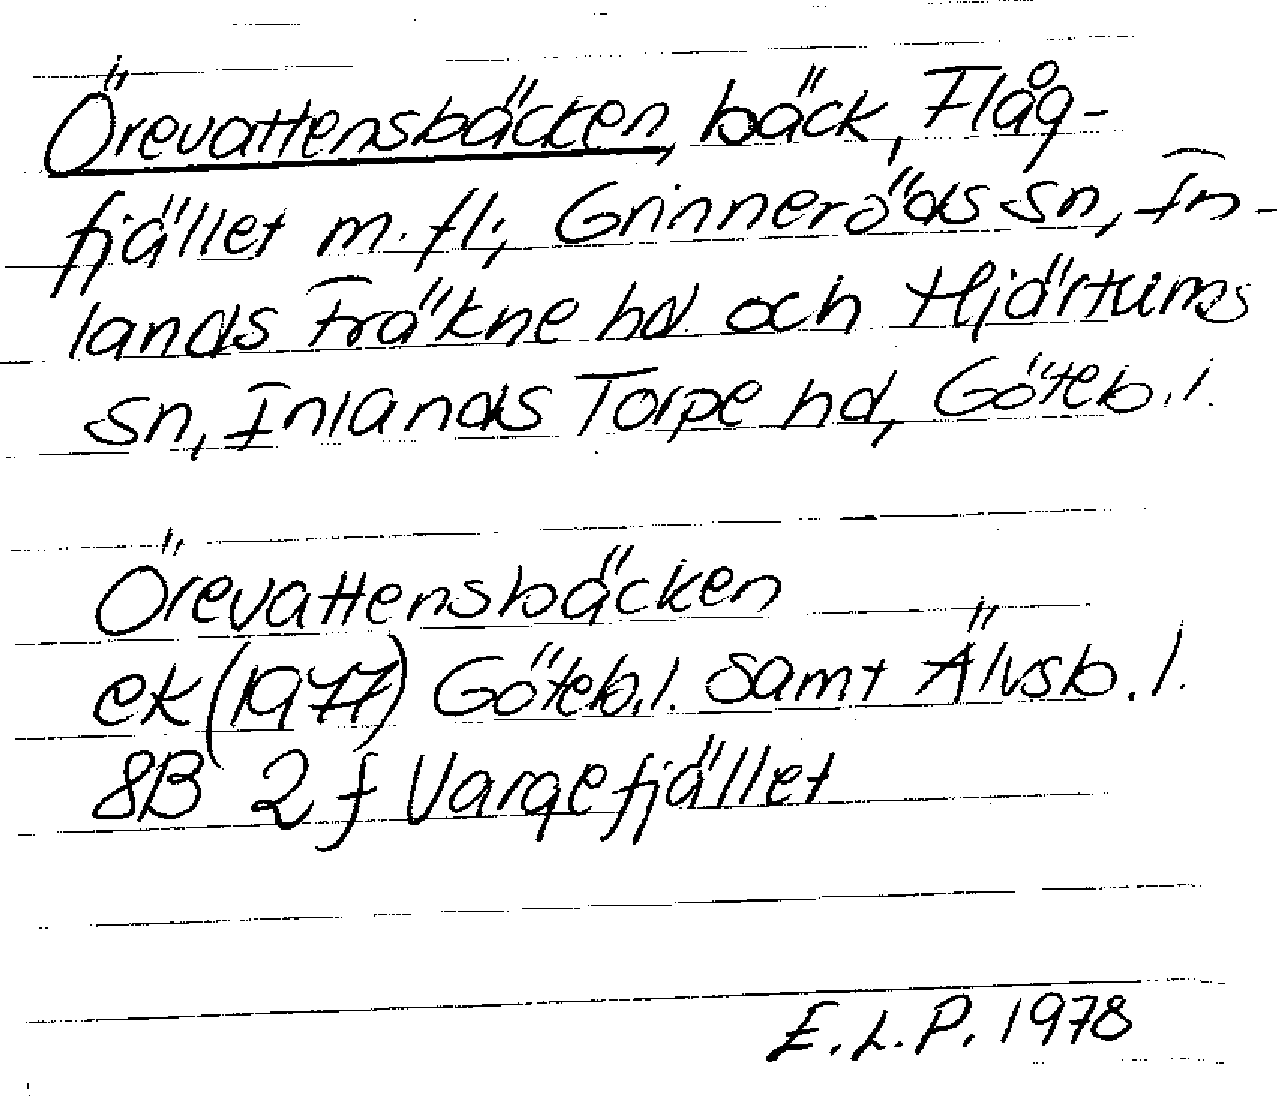 Örevattensbäcken, bäck, Flåg-
fjället m. fl., Grinneröds sn, In-
lands Fräkne hd och Hjärtums
sn, Inlands Torpe hd, Göteb. l.
Örevattensbäcken
ek (1977) Göteb. l. samt Älvsb. l.
8B 2f Vargefjället
E. L. P. 1978